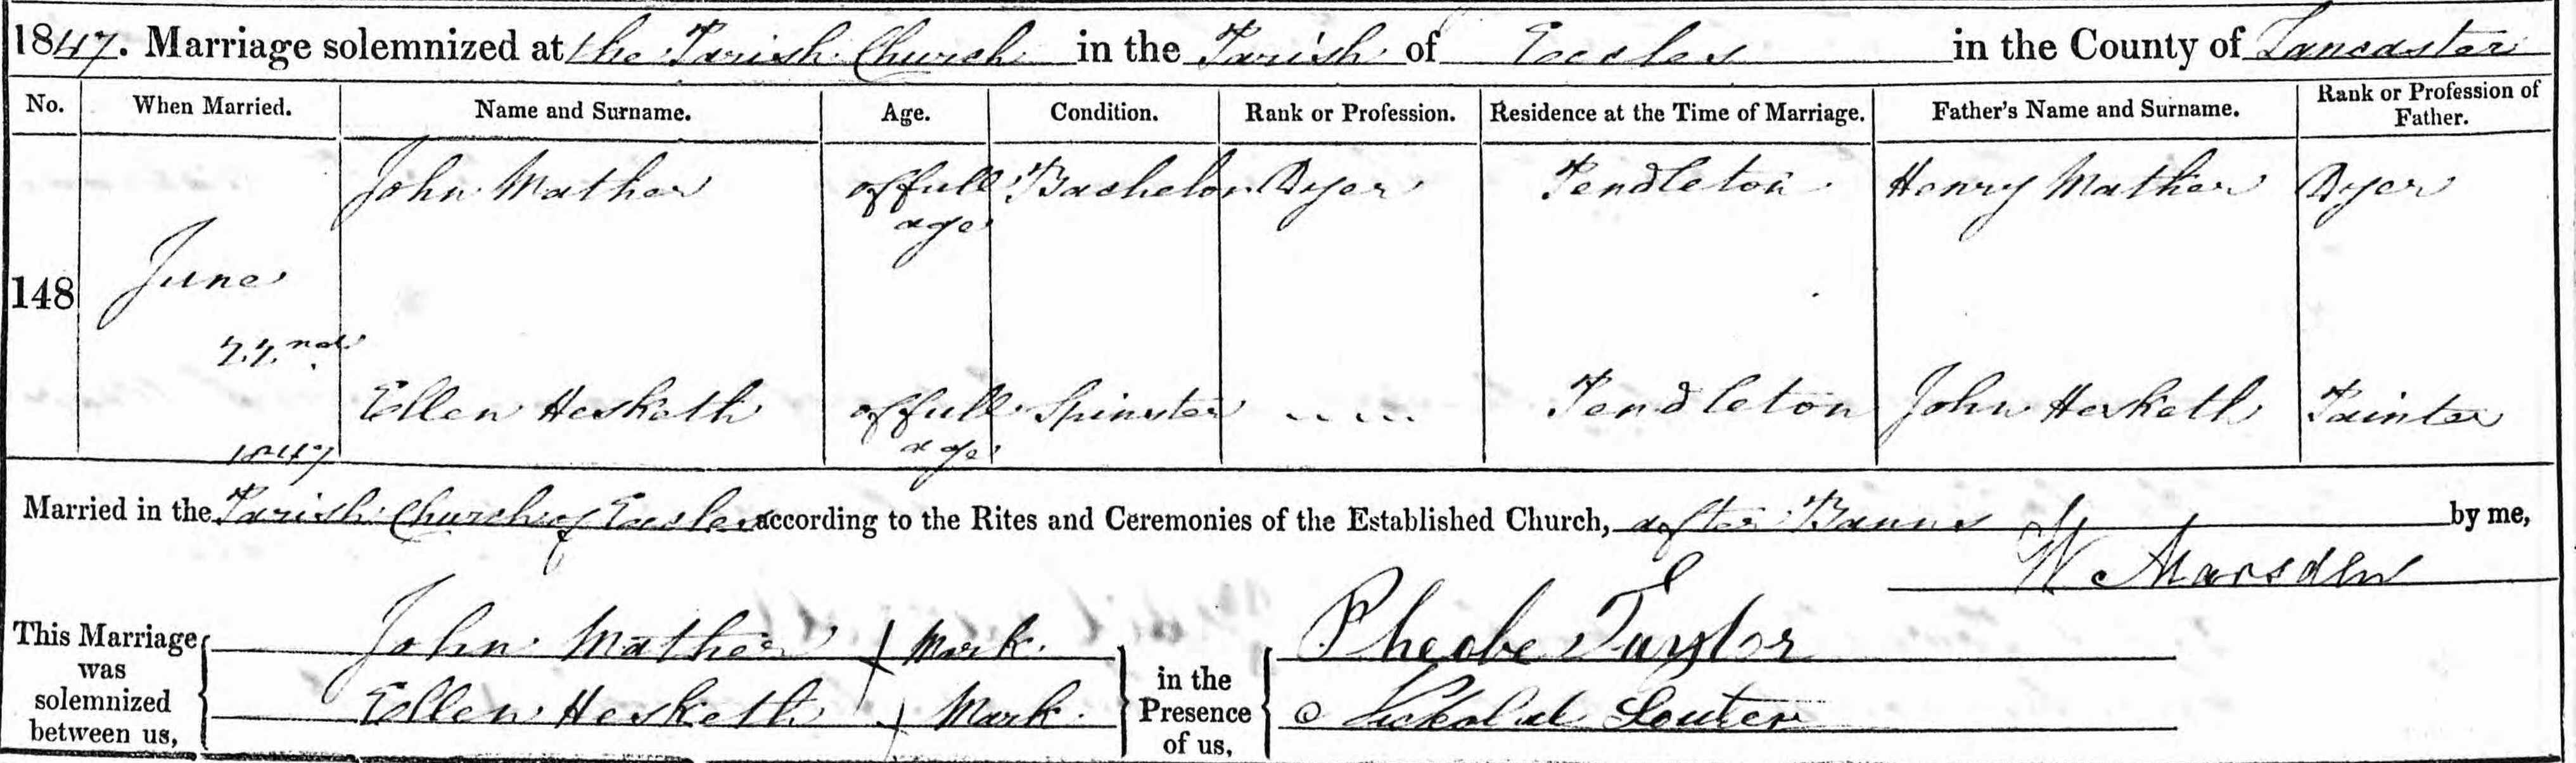 1847. Marriage solemnized at the Parish Church in the Parish of Eccles in the County of Lancaster
No. When Married. Name and Surname. Age. Condition. Rank or Profession. Residence at the Time of Marriage. Father's Name and Surname. Rank or Profession of Father.
John Mather of full age Bachelor Dyer Pendleton Henry Mather Dyer
148 June
22nd
Ellen Hesketh of full age Spinster - - - - Pendleton John Hesketh Painter
1847
Married in the Parish Church of Eccles according to the Rites and Ceremonies of the Established Church, after Banns by me,
W Marsden
This Marriage was solemnized between us, John Mather X Mark. in the Presence of us, Pheobe Taylor
Ellen Hesketh X Mark.